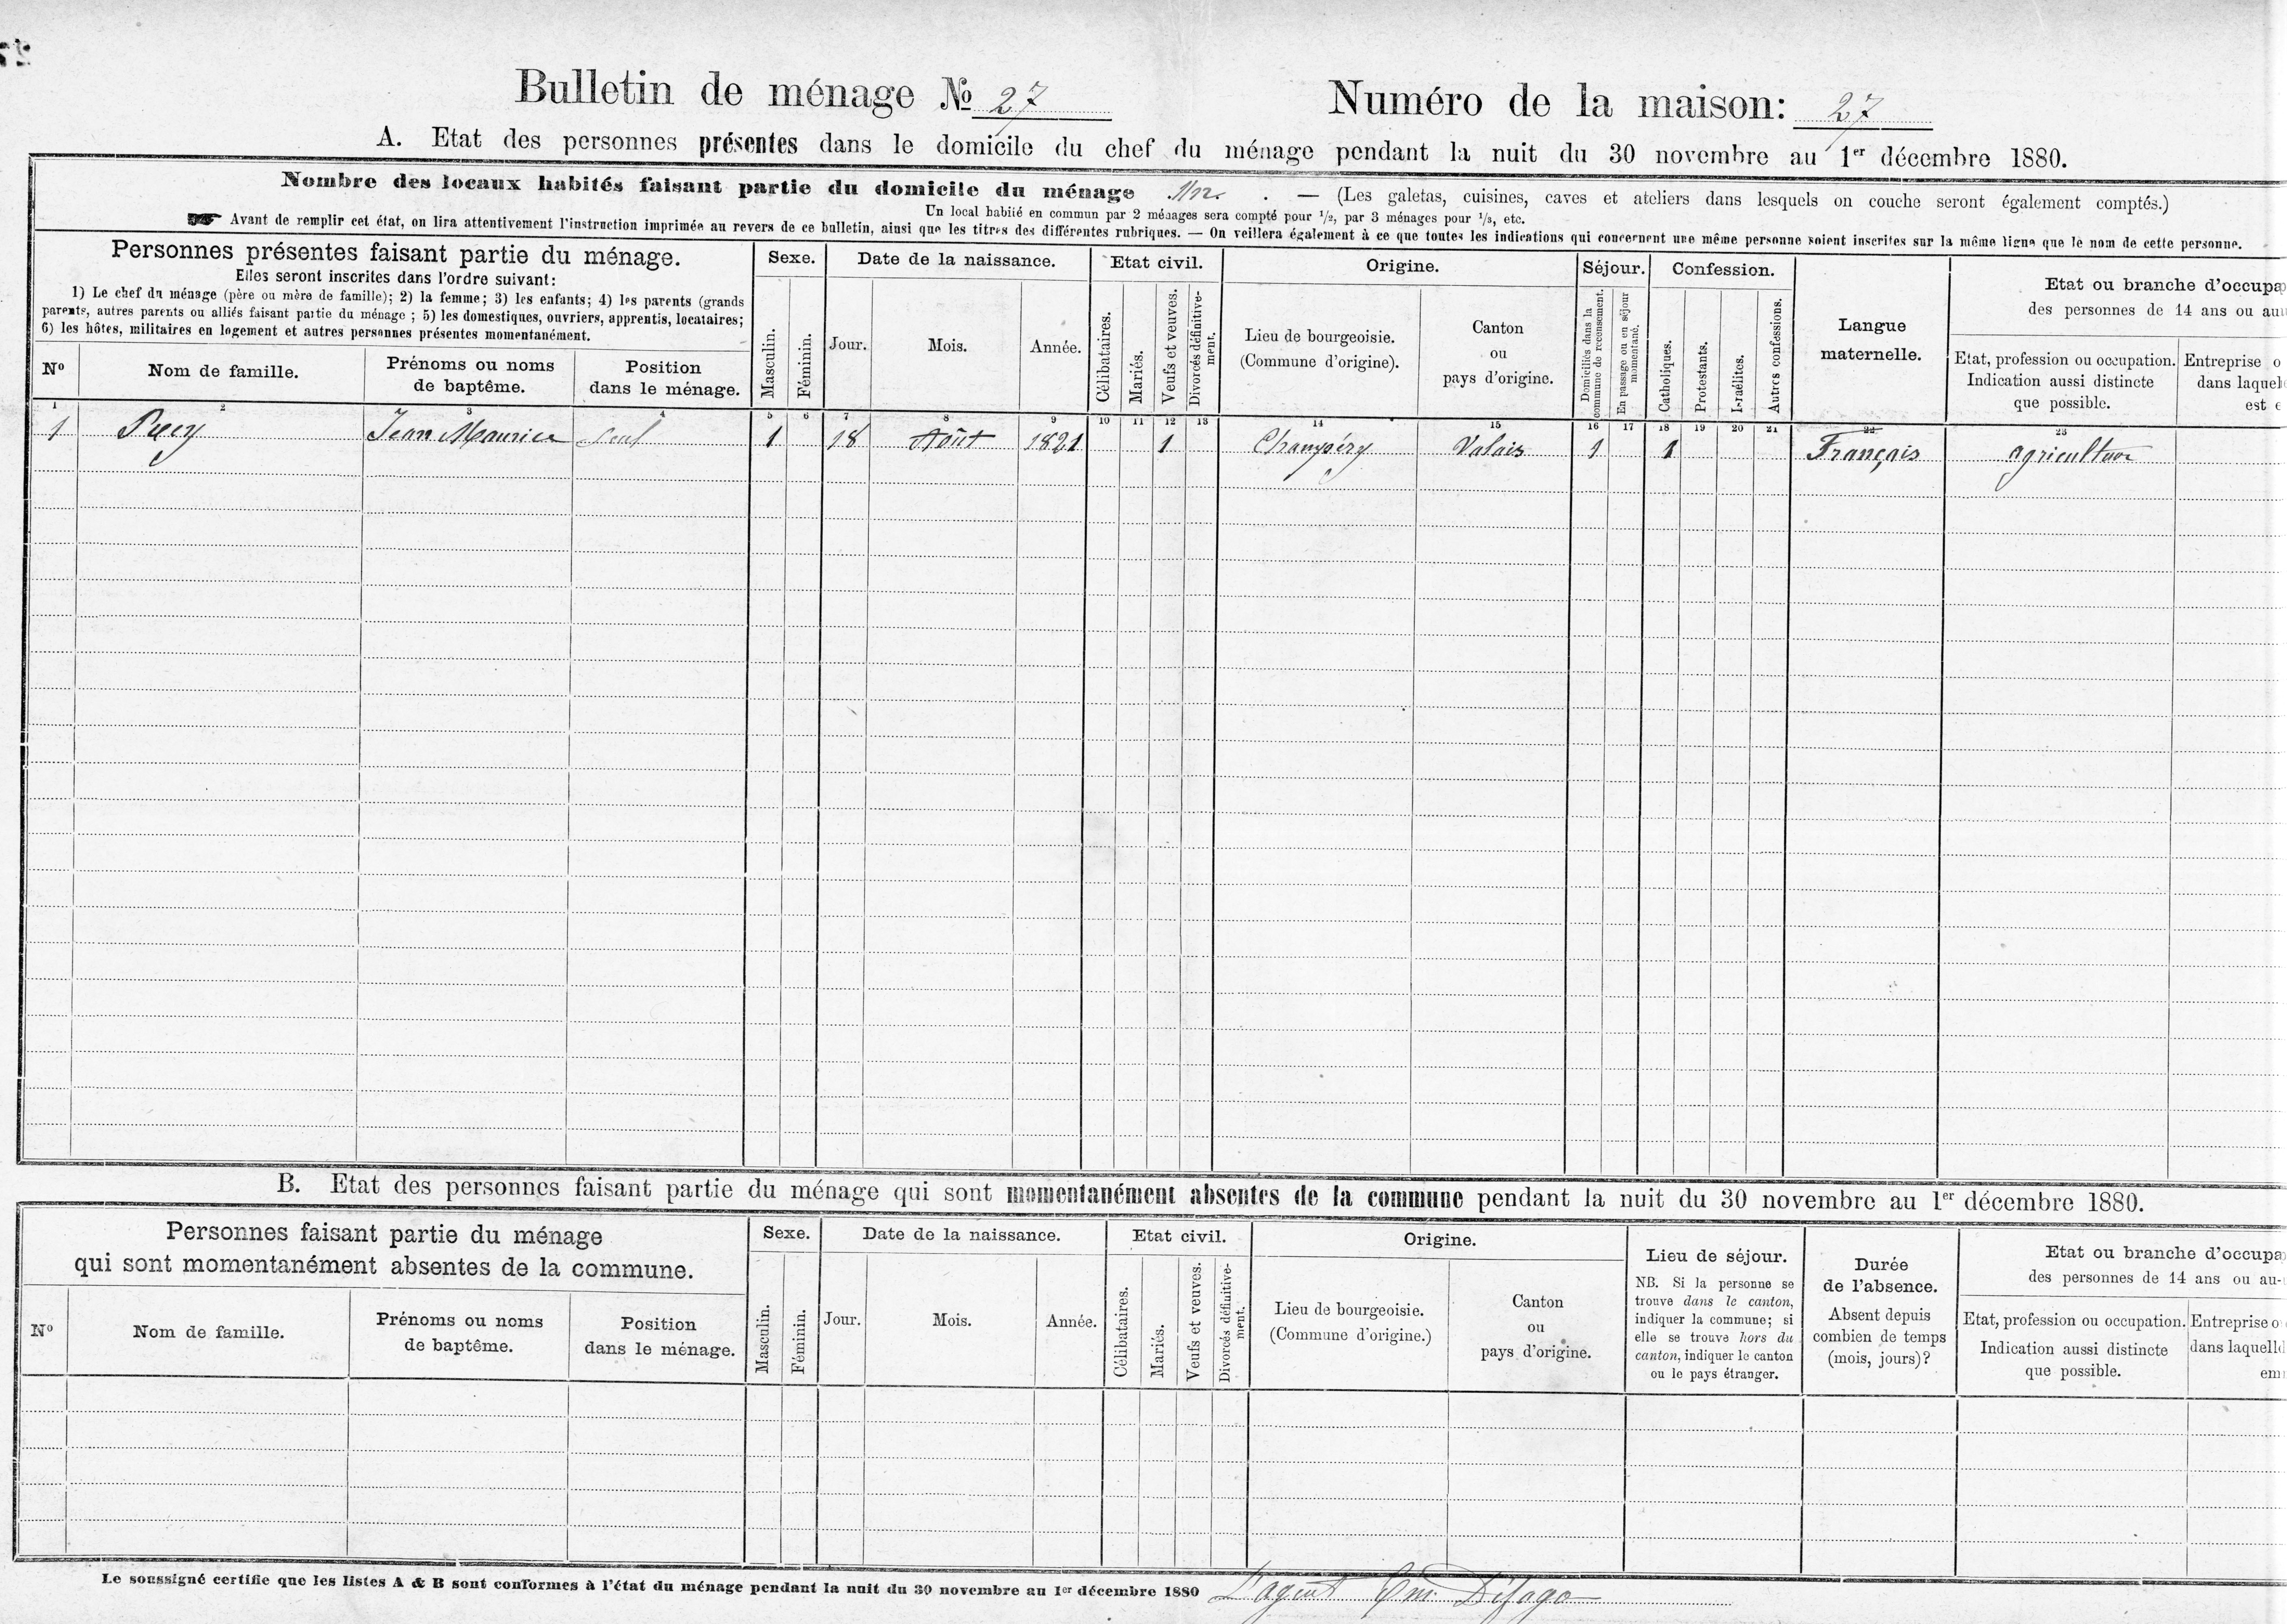 Bulletin de ménage № 27
Numéro de la maison: 27
A. Etat des personnes présentes dans le domicile du chef du ménage pendant la nuit du 30 novembre au 1er décembre 1880.
Nombre des locaux habités faisant partie du domicile du ménage . — (Les galetas, cuisines, caves et ateliers dans lesquels on couche seront également comptés.)
Un local habité en commun par 2 ménages sera compté pour 1/2, par 3 ménages pour 1/3, etc.
☛ Avant de remplir cet état, on lira attentivement l'instruction imprimée au revers de ce bulletin, ainsi que les titres des différentes rubriques. — On veillera également à ce que toutes les indications qui concernent une même personne soient inscrites sur la même ligne que le nom de cette personne.
Personnes présentes faisant partie du ménage.
Elles seront inscrites dans l'ordre suivant:
1) Le chef du ménage (père ou mère de famille); 2) la femme; 3) les enfants; 4) les parents (grands
parents, autres parents ou alliés faisant partie du ménage ; 5) les domestiques, ouvriers, apprentis, locataires;
6) les hôtes, militaires en logement et autres personnes présentes momentanément.
Nº
Nom de famille.
Prénoms ou noms
de baptême.
Position
dans le ménage.
Sexe.
Masculin.
Féminin.
Date de la naissance.
Jour.
Mois.
Année.
Etat civil.
Célibataires.
Mariés.
Veufs et veuves.
Divorcés définitive-
ment.
Origine.
Lieu de bourgeoisie.
(Commune d'origine).
Canton
ou
pays d'origine.
Séjour.
Domiciliés dans la
commune de recensement.
En passage ou en séjour
momentané.
Confession.
Catholiques.
Protestants.
Israélites.
Autres confessions.
Langue
maternelle.
Etat ou branche d'occupa
des personnes de 14 ans ou au
Etat, profession ou occupation.
Indication aussi distincte
que possible.
Entreprise o
dans laquel
est e
1 2 3 4 5 6 7 8 9 10 11 12 13 14 15 16 17 18 19 20 21 22 23
1 Jean Maurice seul 1 18 Août 1821 1 Champéry Valais 1 1 Français agriculteur
B. Etat des personnes faisant partie du ménage qui sont momentanément absentes de la commune pendant la nuit du 30 novembre au 1er décembre 1880.
Personnes faisant partie du ménage
qui sont momentanément absentes de la commune.
Nº
Nom de famille.
Prénoms ou noms
de baptême.
Position
dans le ménage.
Sexe.
Masculin.
Féminin.
Date de la naissance.
Jour.
Mois.
Année.
Etat civil.
Célibataires.
Mariés.
Veufs et veuves.
Divorcés définitive-
ment.
Origine.
Lieu de bourgeoisie.
(Commune d'origine.)
Canton
ou
pays d'origine.
Lieu de séjour.
NB. Si la personne se
trouve dans le canton,
indiquer la commune; si
elle se trouve hors du
canton, indiquer le canton
ou le pays étranger.
Durée
de l'absence.
Absent depuis
combien de temps
(mois, jours)?
Etat ou branche d'occupa
des personnes de 14 ans ou au-
Etat, profession ou occupation.
Indication aussi distincte
que possible.
Entreprise o
dans laquelle
em
Le soussigné certifie que les listes A & B sont conformes à l'état du ménage pendant la nuit du 30 novembre au 1er décembre 1880 L'agent Em. Défago